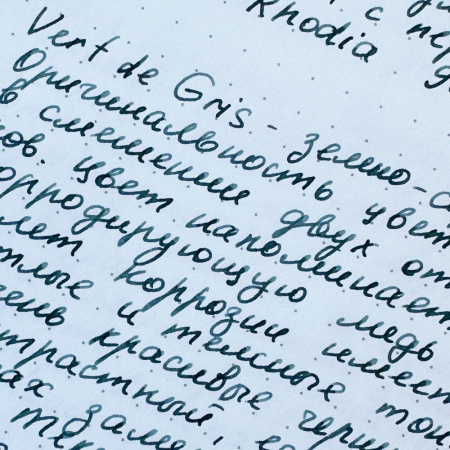 с пер
Rhodia
Vert de Gris - Зелено-с
Оригинальность цвет
в смешении двух от
ов. Цвет напоминает
орродирующую медь
лет коррозии имеет
тлые и темные тон
ень красивые черн
трастный,
ах заме
тем